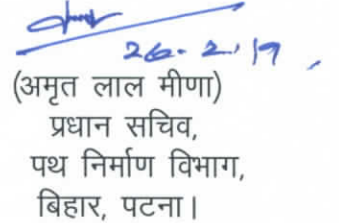 26.2.19
(अमृत लाल मीणा)
प्रधान सचिव,
पथ निर्माण विभाग,
बिहार, पटना।